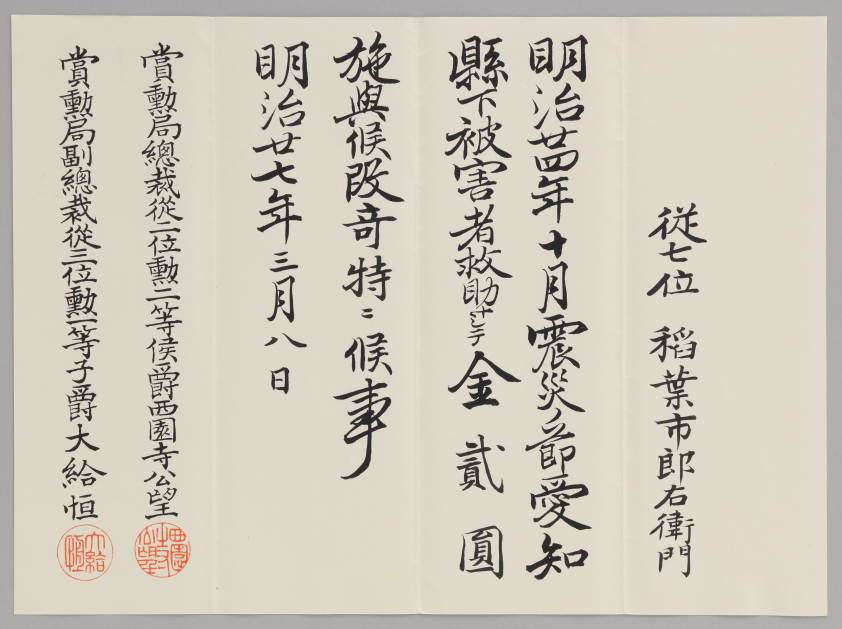 従七位　稻葉市郎右衛門
明治廿四年十月震災ノ節愛知
縣下被害者救助トシテ金貳圓
施與候段竒特ニ候事
明治廿七年三月八日
賞勲局總裁從二位勲二等侯爵西園寺公望
賞勲局副總裁從三位勲一等子爵大給恒